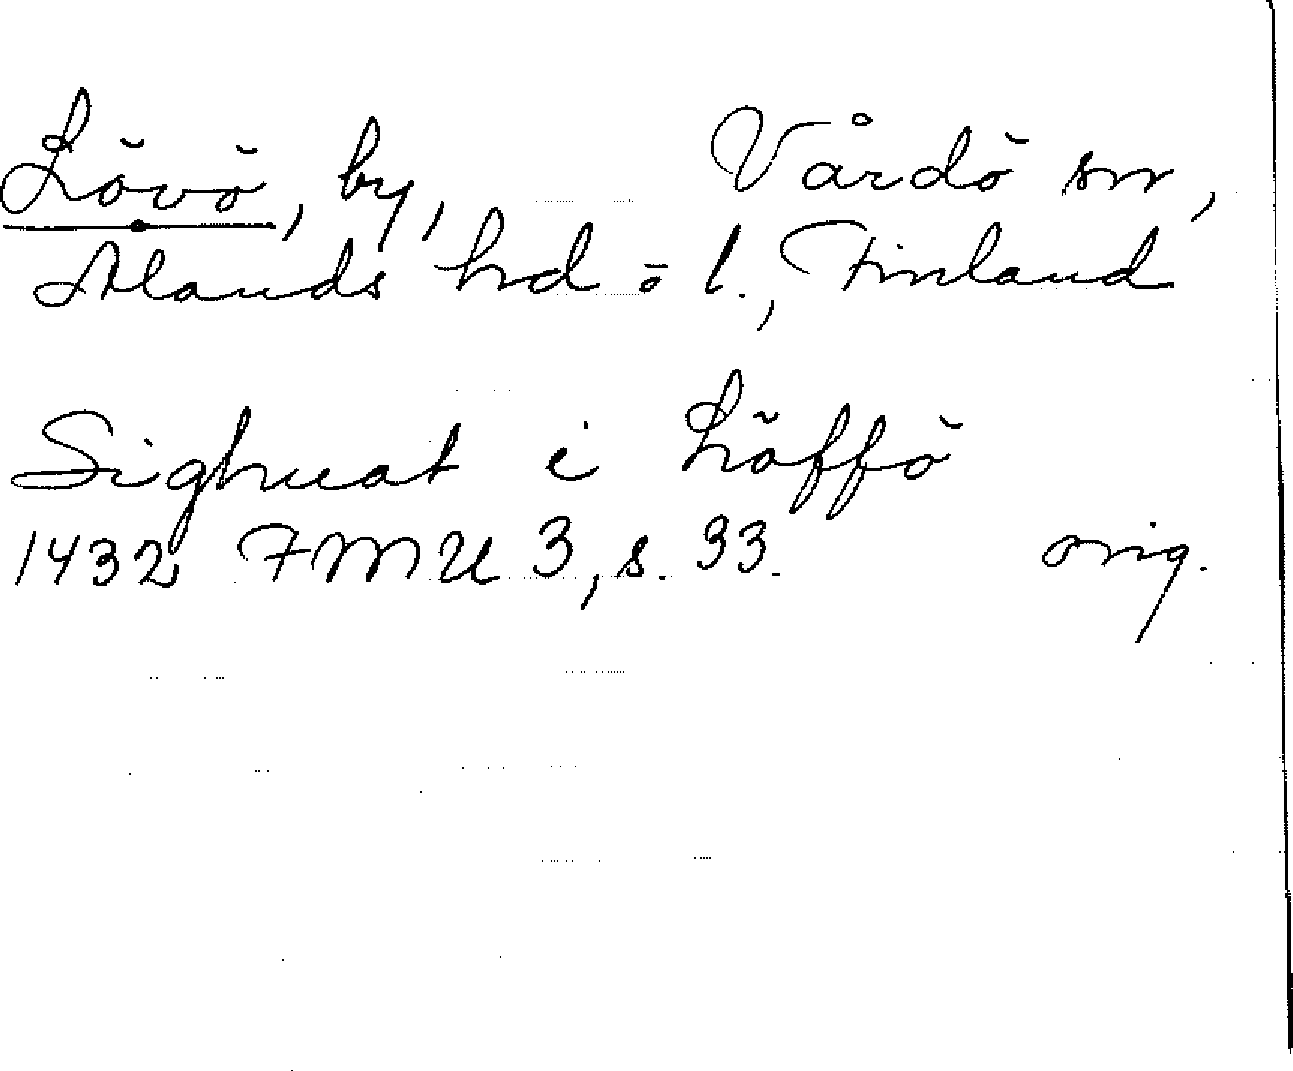 Lövö, by, Vårdö sn,
Ålands hd o l., Finland
Sighuat i Löffö
1432 FMU 3, s. 33. orig.